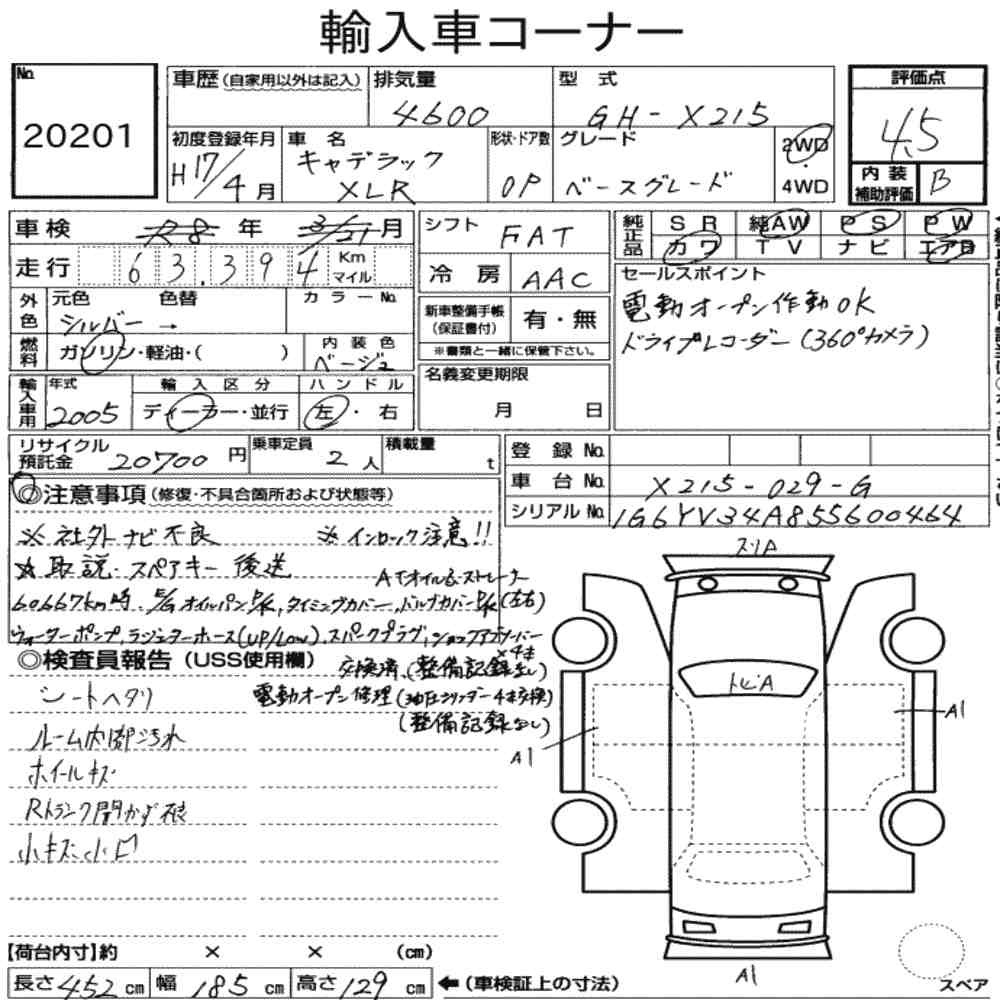 輸入車コーナー
No. 20201
車歴(自家用以外は記入)
排気量 4600
型式 GH-X215
評価点 4.5
初度登録年月 H17/4月
車名 キャデラック XLR
形状・ドア数 OP
グレード ベースグレード
2WD・4WD
内装補助評価 B
車検 R8年 3/21月
シフト FAT
純正品 SR 純AW PS PW
カワ TV ナビ エアB
走行 63,394 Km マイル
冷房 AAC
セールスポイント
電動オープン作動OK
ドライブレコーダー(360°カメラ)
外色 元色 シルバー → 色替 カラーNo.
新車整備手帳(保証書付) 有・無
※書類と一緒に保管下さい。
燃料 ガソリン・軽油・( )
内装色 ベージュ
名義変更期限 月 日
輸入車用 年式 2005
輸入区分 ディーラー・並行
ハンドル 左・右
リサイクル預託金 20700円
乗車定員 2人
積載量 t
登録No.
車台No. X215-029-G
シリアルNo. 1G6YV34A855600464
◎注意事項(修復・不具合箇所および状態等)
※社外ナビ不良 ※インロック注意!!
※取説・スペアキー後送
ATオイル&ストレーナー
60667km時 E/Gオイルパンp/k,タイミングカバー,バルブカバーp/k(左右)
ウォーターポンプ,ラジエターホース(UP/Low),スパークプラグ,ショックアブソーバー
×4本
交換済(整備記録なし)
電動オープン修理(油圧シリンダー4本交換)
(整備記録なし)
◎検査員報告(USS使用欄)
シートヘタリ
ルーム内部汚れ
ホイールキズ
Rトランク開かず
小キズ小凹
スリA
トビA
A1
A1
A1
スペア
【荷台内寸】約 × × (cm)
長さ 452cm 幅 185cm 高さ 129cm ←(車検証上の寸法)